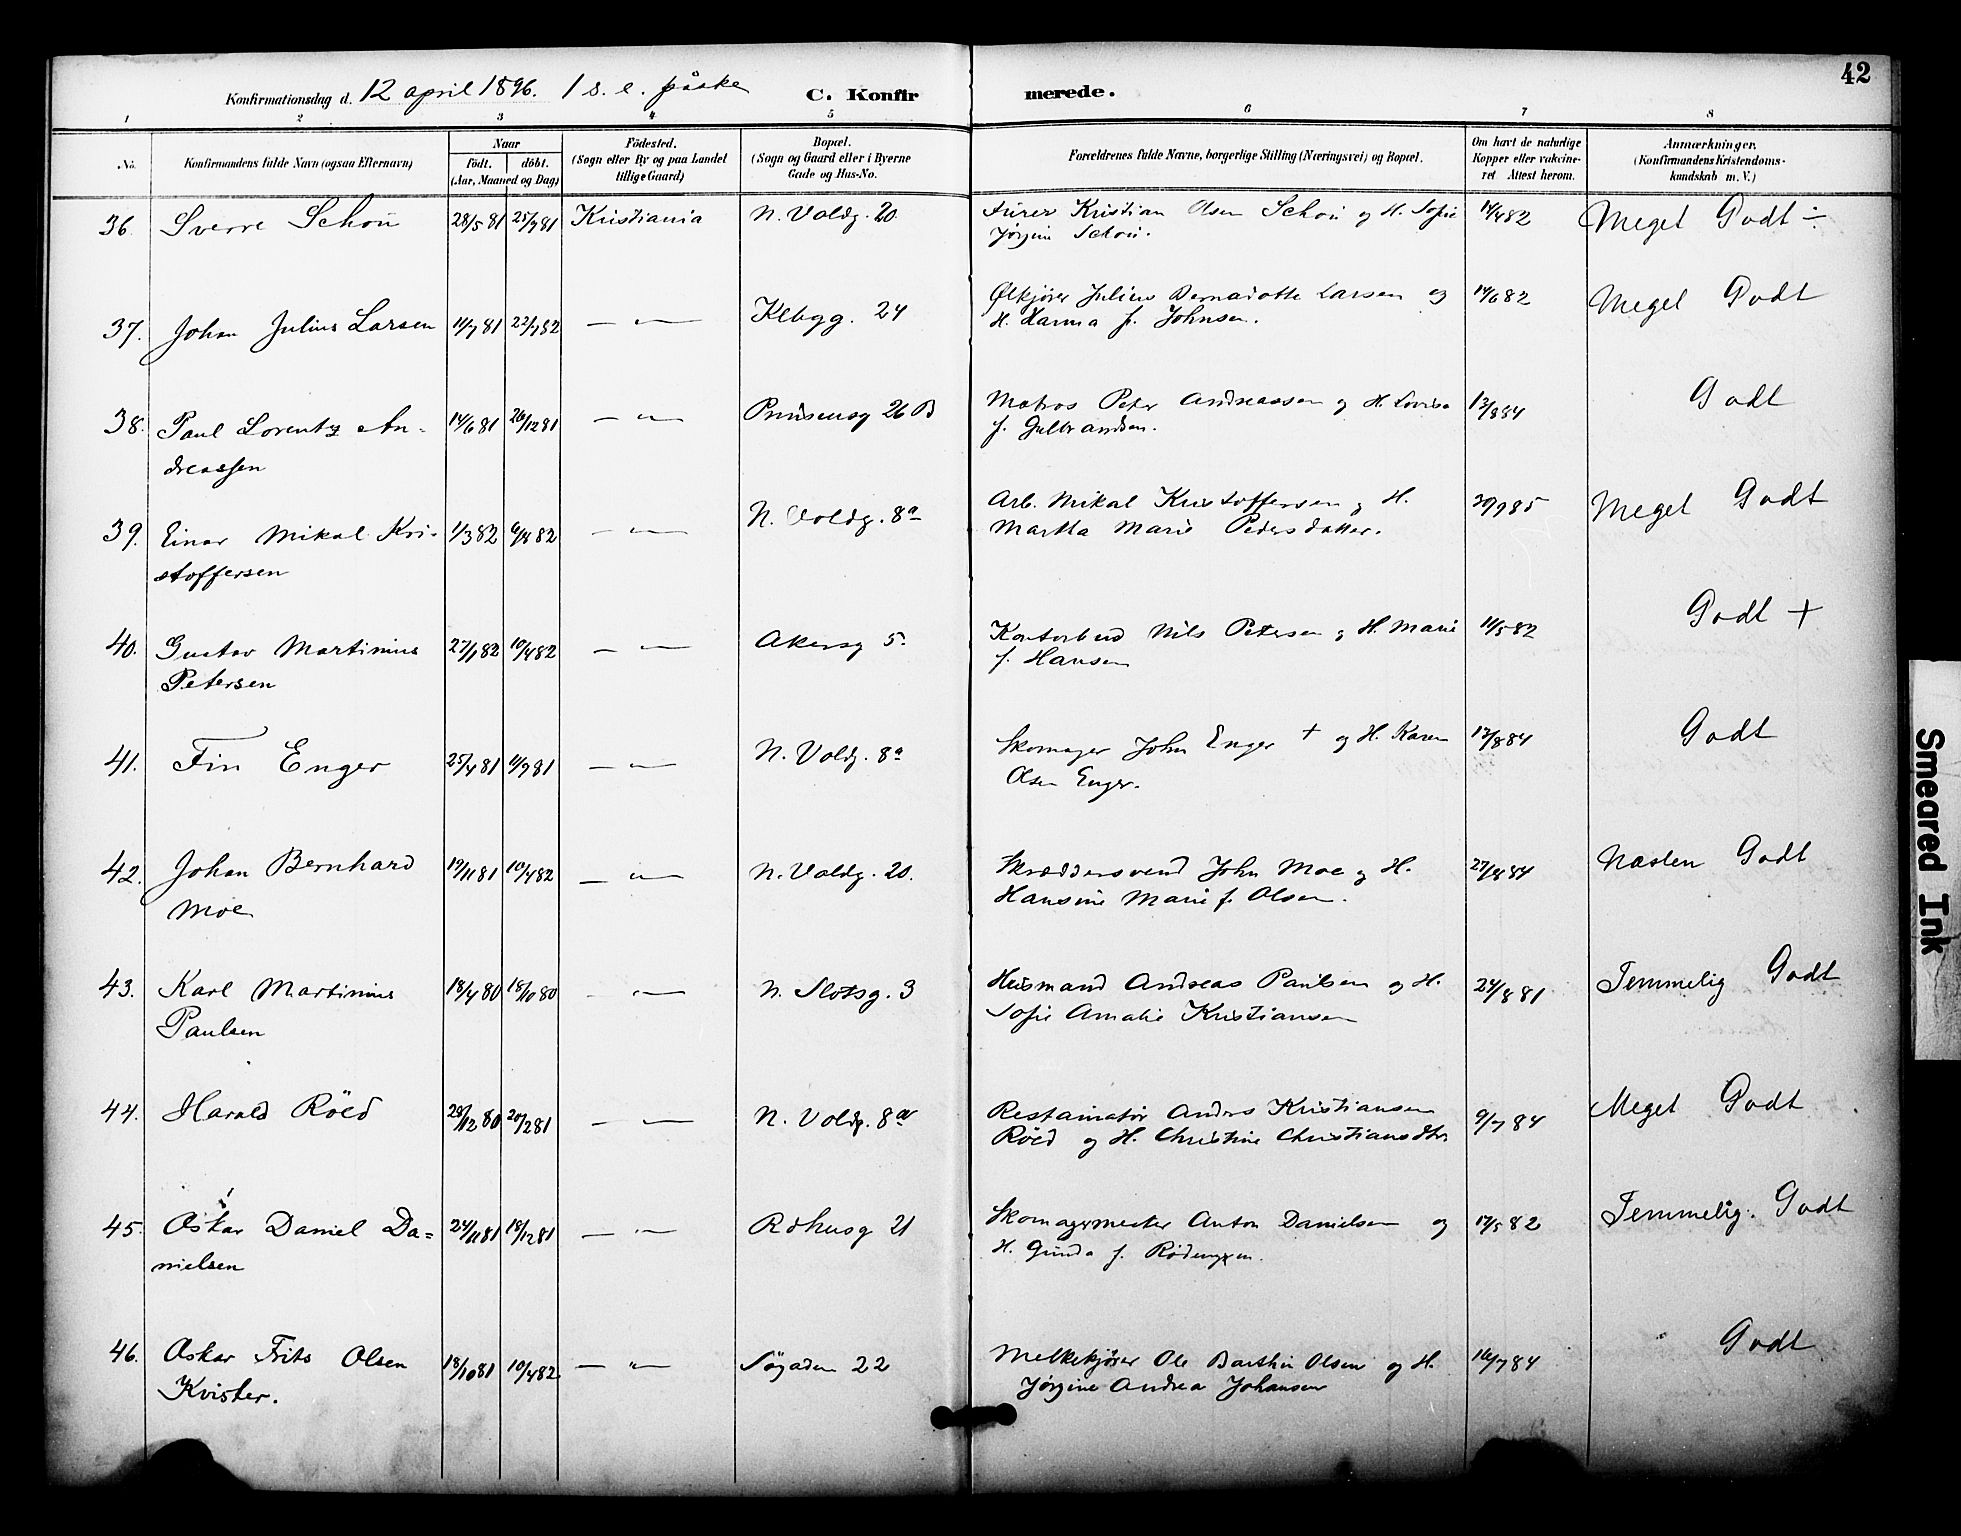 42
Konfirmationsdag d. 12 april 1896. 1 s. e. påske C. Konfirmerede.
1 2 3 4 5 6 7 8
No. Konfirmandens fulde Navn (ogsaa Efternavn) Naar født. døbt. (Aar, Maaned og Dag) Fødested. (Sogn eller By og paa Landet tillige Gaard) Bopæl. (Sogn og Gaard eller i Byerne Gade og Hus-No. Forældrenes fulde Navne, borgerlige Stilling (Næringsvei) og Bopæl. Om havt de naturlige Kopper eller vaccineret Attest herom. Anmærkninger. (Konfirmandens Kristendomskundskab m. V.)
36. Sverre Schou 28/5 81 25/9 81 Kristiania N. Voldg. 20 Kristian Olsen Schou og H. Sofie 14/4 82 Meget Godt ÷
Jørgine Schou.
37. Johan Julius Larsen 11/7 81 22/1 82 — " — Kebgg. 24 Ølkjører Julius Bernadotte Larsen og 14/6 82 Meget Godt
H. Hanna f. Johnsen.
38. Paul Lorentz An- 14/6 81 26/12 81 — " — Prinsensg 26 B Matros Peter Andreassen og H. Lovise 13/8 84 Godt
dreassen f. Gulbrandsen.
39. Einar Mikal Kri- 1/3 82 6/4 82 — " — N. Voldg. 8a Arb. Mikal Kristoffersen og H. 30/9 85 Meget Godt
stoffersen Martha Marie Pedersdatter.
40. Gustav Martinius 27/1 82 10/4 82 — " — Akersg 5. Kontorbud Nils Petersen og H. Marie 11/5 82 Godt +
Petersen f. Hansen
41. Fin Enger 25/4 81 11/9 81 — " — N. Voldg. 8a Skomager John Enger + og H. Karen 13/8 84 Godt
Olsen Enger.
42. Johan Bernhard 19/11 81 10/4 82 — " — N. Voldg. 20. Skræddersvend John Moe og H. 27/8 84 Næsten Godt
Moe Hansine Marie f. Olsen.
43. Karl Martinius 18/4 80 18/10 80 — " — N. Slotsg. 3 Husmand Andreas Paulsen og H. 24/8 81 Temmelig Godt
Paulsen Sofie Amalie Kristiansen
44. Harald Röed 28/12 80 20/2 81 — " — N. Voldg. 8a Restauratør Anders Kristiansen 9/7 84 Meget Godt
Röed og H. Christine Christiansdtr
45. Oskar Daniel Da= 24/11 81 18/12 81 — " — Rdhusg 21 Skomagermester Anton Danielsen og 17/5 82 Temmelig. Godt
nielsen H. Gunda f.
46. Oskar Frits Olsen 18/10 81 10/4 82 — " — Søgaden 22 Melkekjører Ole Olsen og H. 16/7 84 Godt
Kvister. Jørgine Andrea Johansen
Smeared Ink